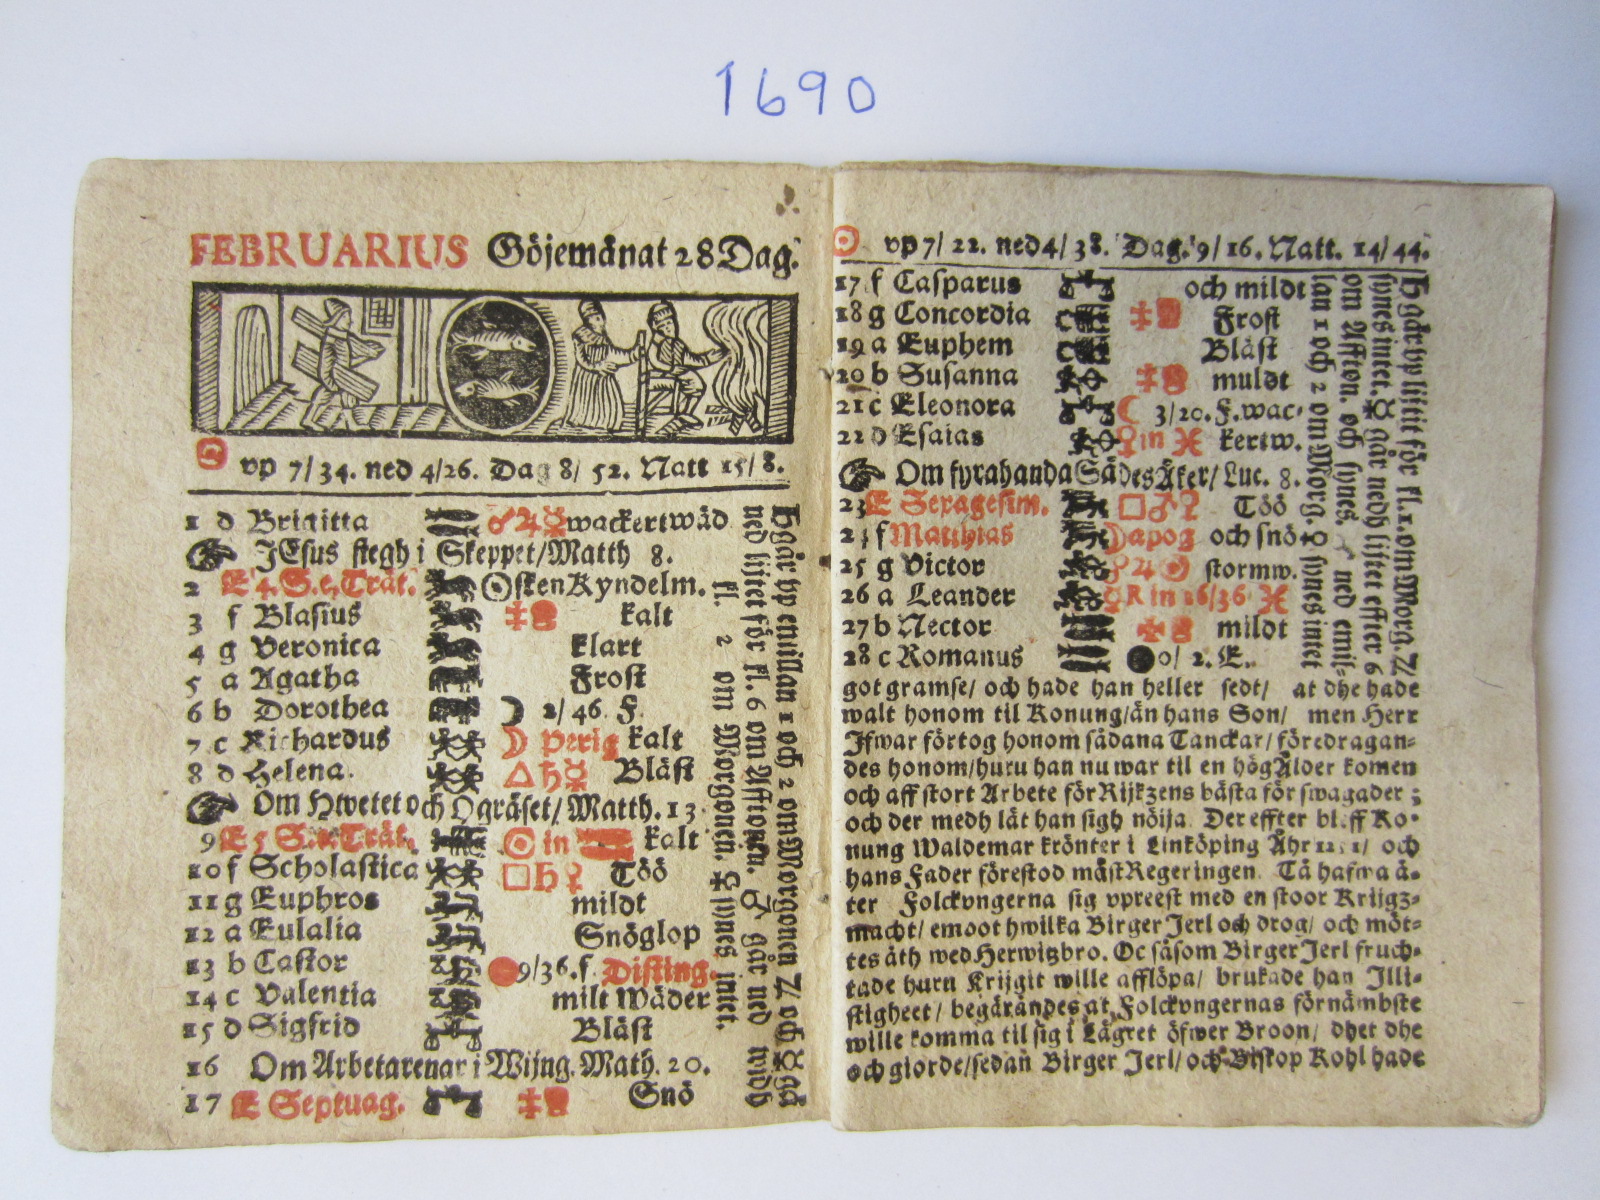 1690
FEBRUARIUS Göjemånat 28 Dag.
vp 7/34. ned 4/26. Dag 8/ 52. Natt 15/8.
1 d Brigitta ☌♃☿ wackertwäd
JEsus stegh i Skeppet/Matth 8.
2 E 4. S. e. Trät. ☉sken Kyndelm.
3 f Blasius kalt
4 g Veronica klart
5 a Agatha Frost
6 b Dorothea ☽ 2/46. F.
7 c Richardus ☽ Perig kalt
8 d Helena. △♄☿ Blåst
Om Hwetet och Ogräset/Matth. 13
9 E 5 S. e. Trät. ☉ in kalt
10 f Scholastica □♄♀ Töö
11 g Euphros mildt
12 a Eulalia Snöglop
13 b Castor 9/36. f. Disting.
14 c Valentia milt Wäder
15 d Sigfrid Blåst
16 Om Arbetarenar i Wijng. Math. 20.
17 E Septuag. Snö
♄ går vp emillan 1 och 2 om Morgonen ♃ och ☿ gå
ned litet för kl. 6 om Afftonen. ♂ går ned widh
kl. 2 om Morgonen. ♀ synes intet.
☉ vp 7/22. ned 4/38. Dag. 9/16. Natt. 14/44.
17 f Casparus och mildt
18 g Concordia Frost
19 a Euphem Blåst
20 b Susanna muldt
21 c Eleonora ☾ 3/20. F. wac-
22 d Esaias ♀ in ♓ kertw.
Om fyrahanda Sädes Åker/Luc. 8.
23 E Sexagesim. □♂♀ Töö
24 f Matthias ☽apog och snö
25 g Victor ☌♃☉ stormw.
26 a Leander ☿R in 16/36 ♓
27 b Nector mildt
28 c Romanus 0/ 2. E.
♄ går vp litit för kl. 1. om Morg. ♃
synes intet. ☿ går nedh litet effter 6
om Affton. och synes. ♂ ned emil-
lan 1 och 2 om Morg. ♀ synes intet
got gramse/ och hade han heller sedt/ at dhe hade
walt honom til Konung/än hans Son/ men Herr
Jfwar förtog honom sådana Tanckar/föredragan-
des honom/huru han nu war til en hög Ålder komen
och aff stort Arbete för Rijkzens bästa för swagader ;
och der medh lät han sigh nöija. Der effter bleff Ko-
nung Waldemar krönter i Linköping Åhr och
hans Fader förestod mäst Regeringen. Tå hafwa å-
ter Folckvngerna sig vpreest med en stoor Krijgz-
macht/ emoot hwilka Birger Jerl och drog/ och möt-
tes åth wed Herwitzbro. Oc såsom Birger Jerl fruch-
tade hurn Krijgit wille afflöpa/ brukade han Jlli-
stigheet/ begärandes at Folckvngernas förnämbste
wille komma til sig i Lägret öfwer Broon/ dhet dhe
och giorde/sedan Birger Jerl/ och Biskop Kohl hade